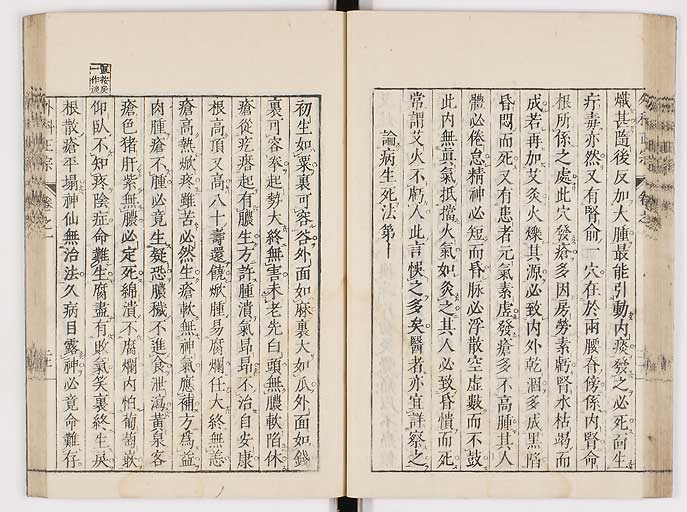 熾甚隨後反加大腫最能引動內痰發之必死面生
疔毒亦然又有腎俞一穴在於兩腰脊傍係內腎命
根所係之處此穴發瘡多因房勞素虧腎水枯竭而
成若再加艾灸火爍其源必致內外乾涸多成黑陷
昏悶而死又有患者元氣素虛發瘡多不高腫其人
體必倦怠精神必短而昏脉必浮散空虛數而不鼓
此內無眞氣抵擋火氣如灸之其人必致昏憒而死
常謂艾火不虧人此言悞之多矣醫者亦宜詳察之
論病生死法第十
初生如粟裏可容谷外面如麻裏大如瓜外面如錢
裏可容拳起勢大終無害未老先白頭無膿軟陷休
瘡從疙瘩起有膿生方許腫潰氣昂昂不治自安康
根高頂又高八十壽還饒焮腫易腐爛任大終無恙
瘡高熱焮疼雖苦必然生瘡軟無神氣應補方爲益
肉腫瘡不腫必竟生疑恐膿穢不進食泄瀉黃泉客
瘡色猪肝紫無膿必定死綿潰不腐爛內怕葡萄嵌
仰臥不知疼陰症命難生腐盡有敗氣笑裏終生戾
根散瘡平塌神仙無治法久病目露神必竟命難存
外科正宗
卷之一